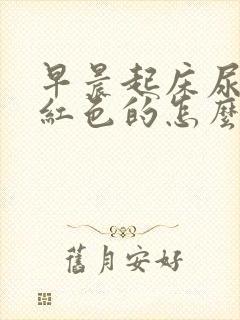 早晨起床尿
紅色的怎麼
舊月安好